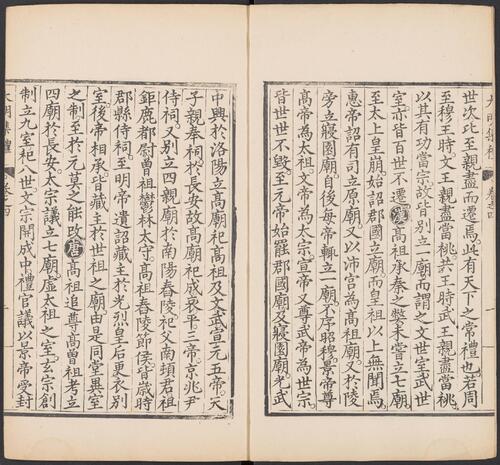 世次比至親盡而遷焉此有天下之常禮也若周
至穆王時文王親盡當祧共王時武王親盡當祧
以其有功當宗故皆别立一廟而謂之文世室武世
室亦皆百世不遷漢高祖承秦之弊未嘗立七廟
至太上皇崩始詔郡國立廟而皇祖以上無聞焉
惠帝詔有司立原廟又以沛宫為高祖廟又於陵
旁立寢園廟自後每帝輒立一廟不序昭穆景帝尊
高帝為太祖文帝為太宗宣帝又尊武帝為世宗
皆世世不毁至元帝始罷郡國廟及寢園廟光武
中興於洛陽立高廟祀高祖及文武宣元五帝天
子親奉祠於長安故高廟祀成哀平三帝京兆尹
侍祠又别立四親廟於南陽舂陵祀父南頓君祖
鉅鹿都尉曾祖鬱林太守高祖舂陵節侯皆歲時
郡縣侍祠至明帝遺詔藏主於光烈皇后更衣别
室後帝相承皆藏主於世祖之廟由是同堂異室
之制至於元莫之能改唐高祖追尊高曾祖考立
四廟於長安太宗議立七廟虛太祖之室玄宗創
制立九室祀八世文宗開成中禮官議以景帝受封
大明集禮 卷之四